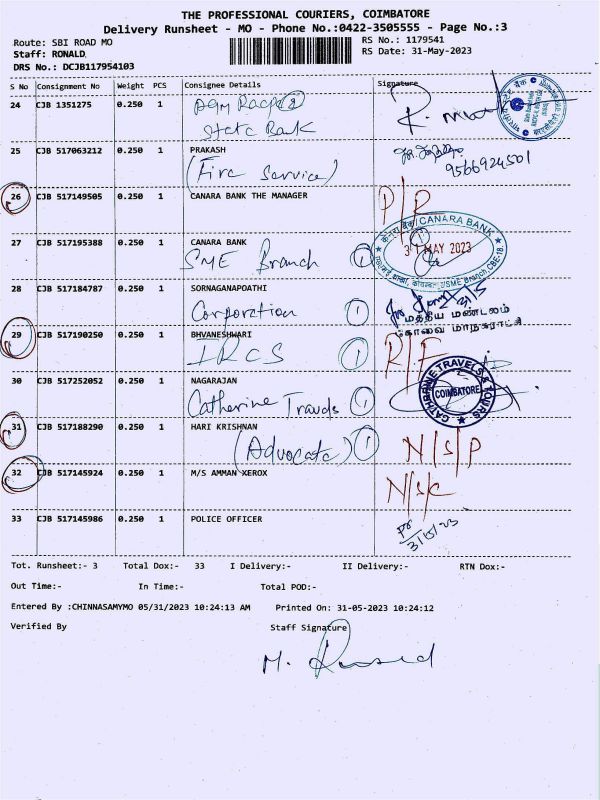 THE PROFESSIONAL COURIERS, COIMBATORE
Delivery Runsheet - MO - Phone No.:0422-3505555 - Page No.:3
Route: SBI ROAD MO
RS No.: 1179541
Staff: RONALD
RS Date: 31-May-2023
DRS No.: DCJB117954103
S No Consignment No Weight PCS Consignee Details Signature
24 CJB 1351275 0.250 1 AGM
State Bank
25 CJB 517063212 0.250 1 PRAKASH
(Fire Service)
9566924501
26 CJB 517149505 0.250 1 CANARA BANK THE MANAGER
CANARA BANK
27 CJB 517195388 0.250 1 CANARA BANK
31 MAY 2023
SME Branch 1
SME Branch, CBE-18.
28 CJB 517184787 0.250 1 SORNAGANAPOATHI
Corporation 1
மத்திய மண்டலம்
கோவை மாநகராட்சி
29 CJB 517190250 0.250 1 BHVANESHWARI R/F
IRCS 1
30 CJB 517252052 0.250 1 NAGARAJAN
CATHERINE TRAVELS & TOURS
COIMBATORE
Catherine Travels 1
31 CJB 517188290 0.250 1 HARI KRISHNAN
(Advocate) 1 N/S/P
32 CJB 517145924 0.250 1 M/S AMMAN XEROX
N/S/C
33 CJB 517145986 0.250 1 POLICE OFFICER
31/5/23
Tot. Runsheet:- 3 Total Dox:- 33 I Delivery:- II Delivery:- RTN Dox:-
Out Time:- In Time:- Total POD:-
Entered By :CHINNASAMYMO 05/31/2023 10:24:13 AM Printed On: 31-05-2023 10:24:12
Verified By Staff Signature